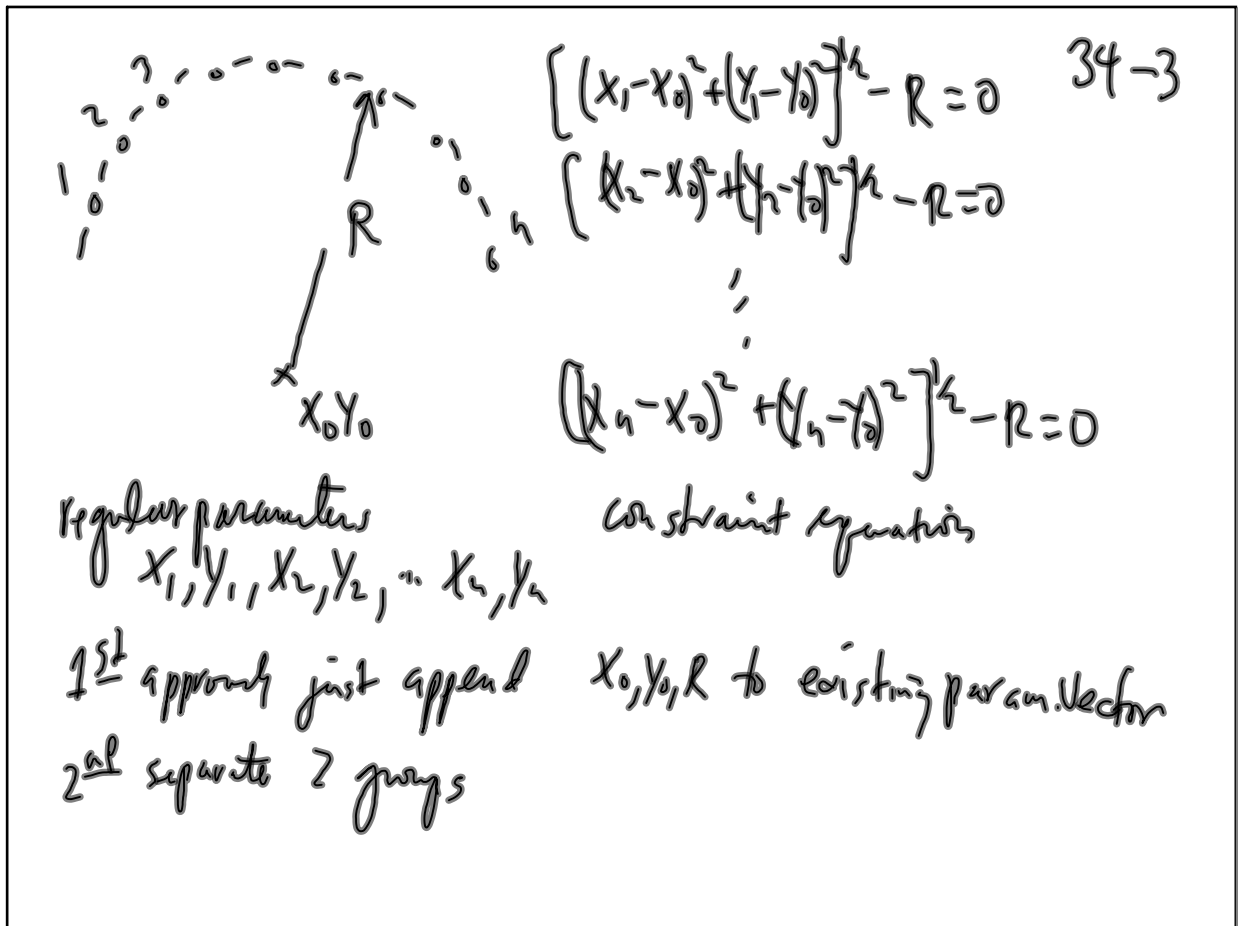 34-3
1 2 3 n
R
X₀Y₀
[(X₁-X₀)²+(Y₁-Y₀)²]^½ - R = 0
[(X₂-X₀)²+(Y₂-Y₀)²]^½ - R = 0
⋮
[(Xₙ-X₀)²+(Yₙ-Y₀)²]^½ - R = 0
regular parameters
X₁,Y₁,X₂,Y₂,... Xₙ,Yₙ
constraint equations
1st approach just append X₀,Y₀,R to existing param. vector
2nd separate 2 groups